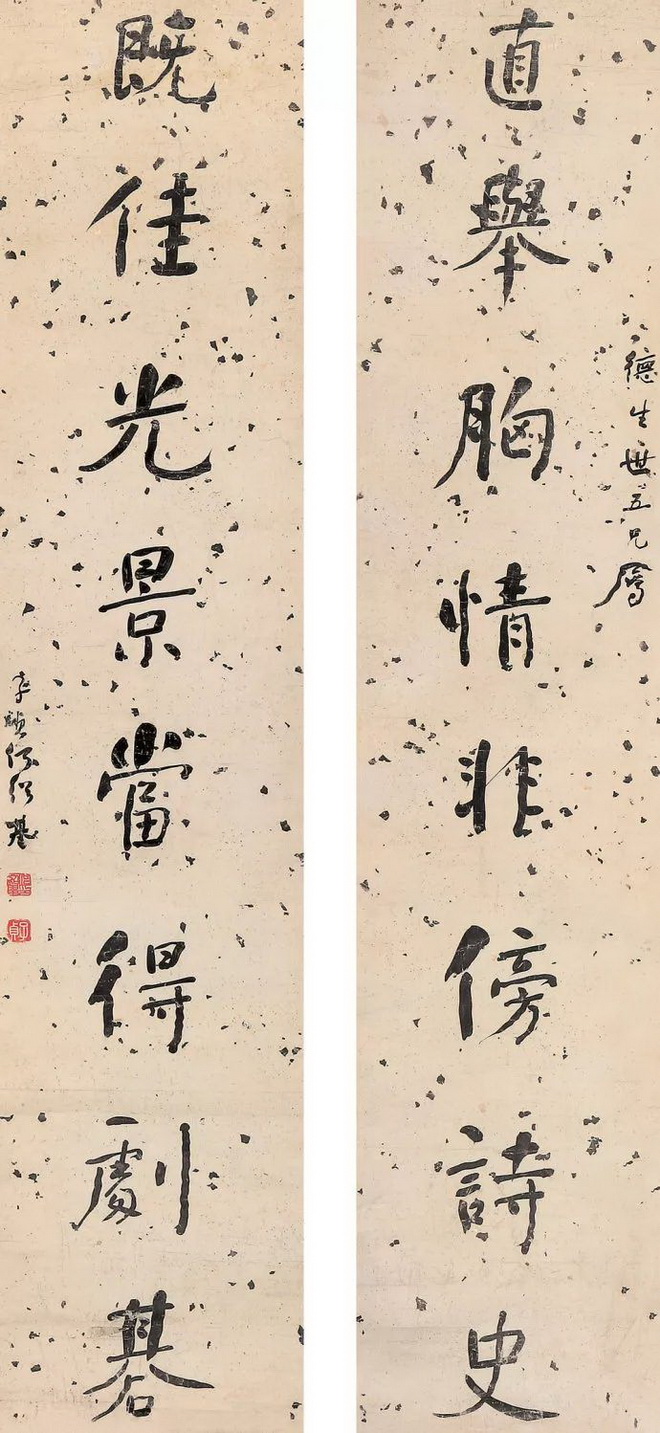 德生世五兄屬
直舉胸情非傍詩史
既佳光景當得劇碁
子貞何紹基
何紹基印
子貞